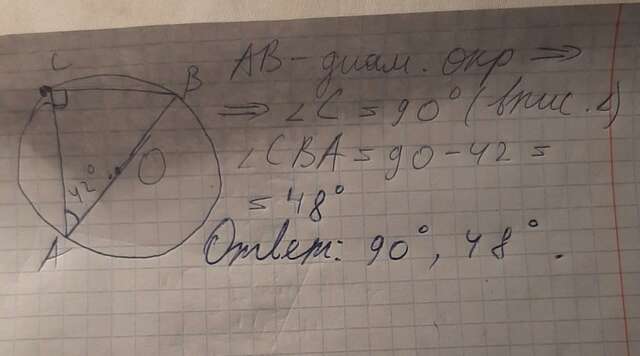 C
B
42°
O
A
AB - диам. окр ⇒
⇒ ∠C = 90° (впис. ∠)
∠CBA = 90 - 42 =
= 48°
Ответ: 90°, 48°.